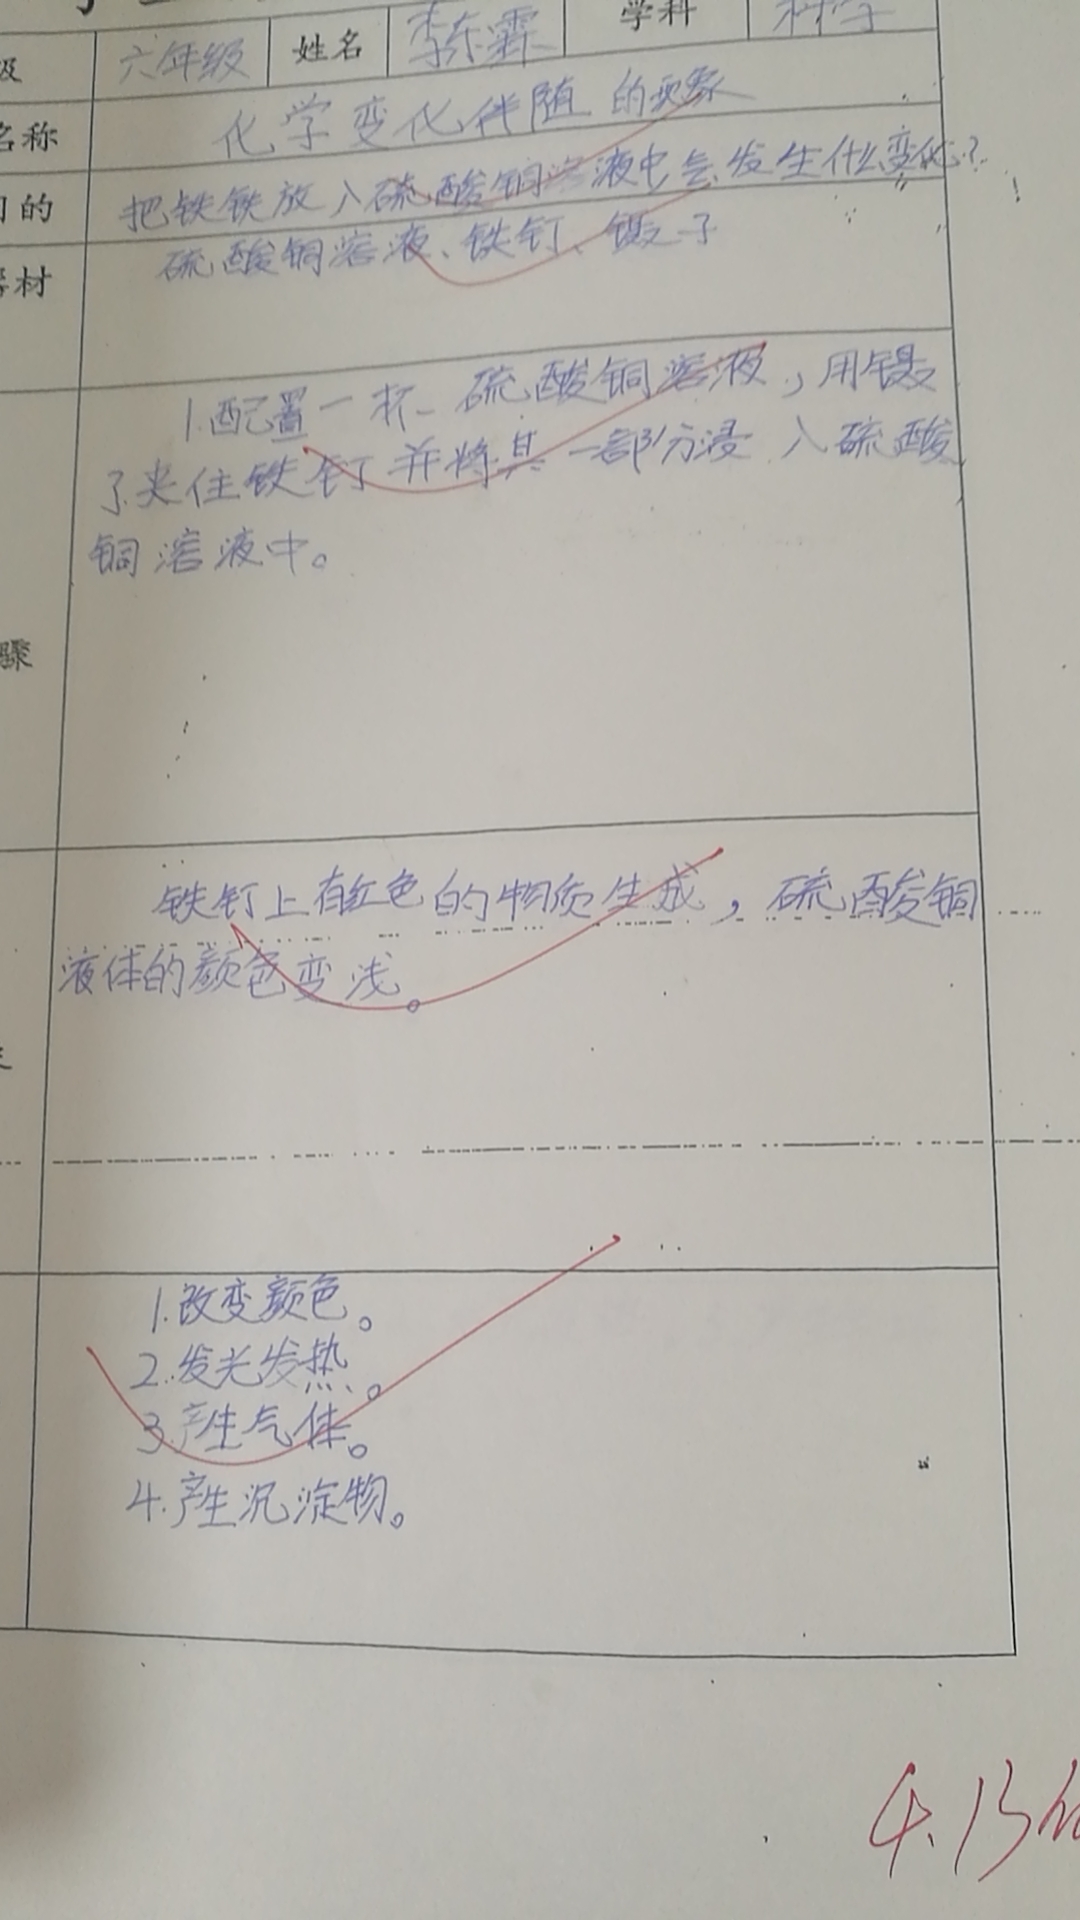 级 六年级 姓名 李东霖 学科 科学
名称 化学变化伴随的现象
目的 把铁铁放入硫酸铜溶液中会发生什么变化?
器材 硫酸铜溶液、铁钉、镊子
骤
1.配置一杯硫酸铜溶液,用镊
子夹住铁钉并将其一部分浸入硫酸
铜溶液中。
铁钉上有红色的物质生成,硫酸铜
液体的颜色变浅。
1.改变颜色。
2.发光发热。
3.产生气体。
4.产生沉淀物。
4.13